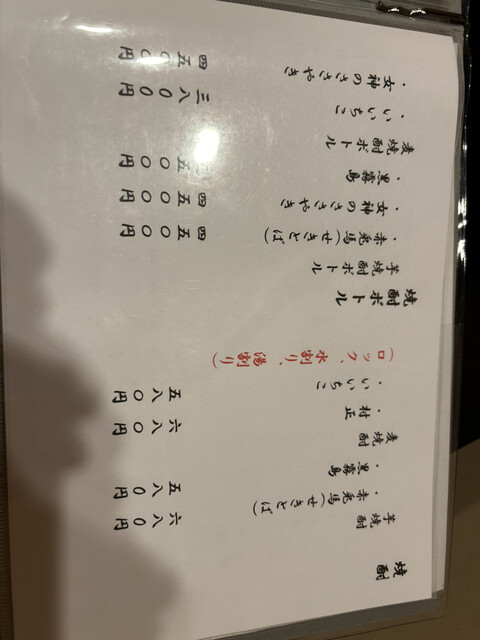 焼酎
芋焼酎
・赤兎馬(せきとば) 六八〇円
・黒霧島 五八〇円
麦焼酎
・村正 六八〇円
・いいちこ 五八〇円
(ロック、水割り、湯割り)
焼酎ボトル
芋焼酎ボトル
・赤兎馬(せきとば) 四五〇〇円
・女神のささやき 四五〇〇円
・黒霧島
麦焼酎ボトル
・いいちこ 三八〇〇円
・女神のささやき 四五〇〇円